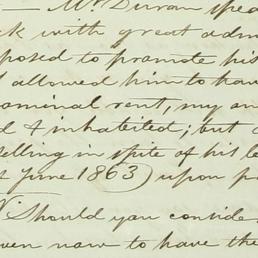 — Mr Duran spea
ck with great adm
posed to promote his
d allowed him to have
nominal rent, my an
d & inhabited; but
selling in spite of his le
t June 1863) upon p
Should you conside
ven now to have the